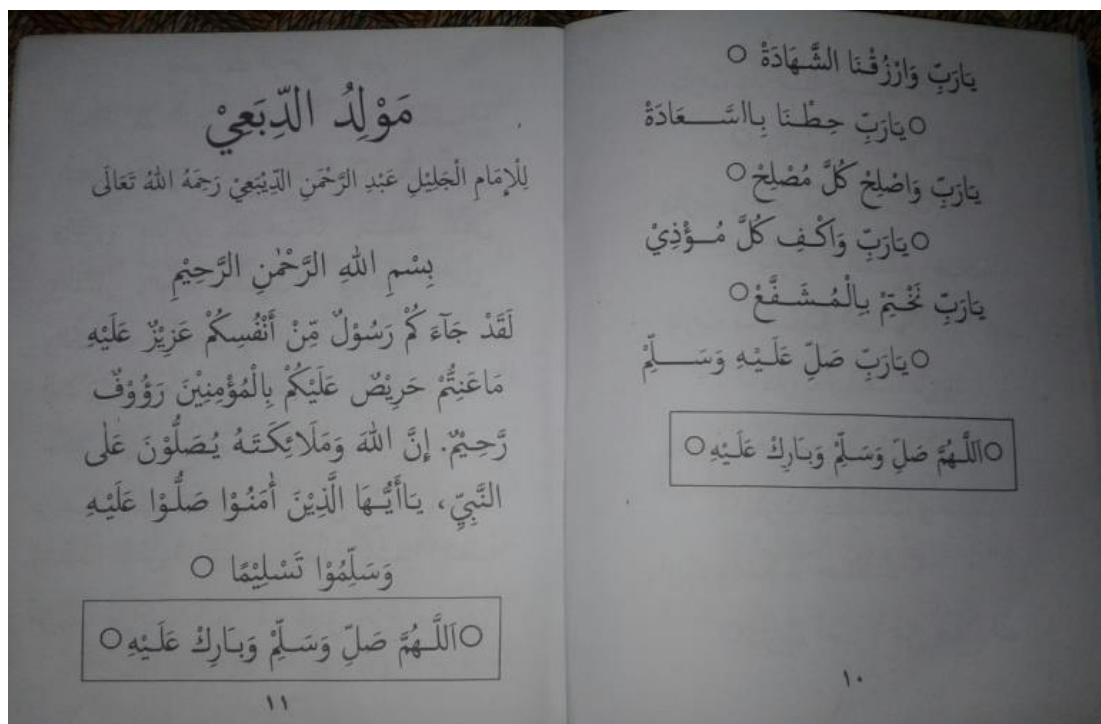 يَارَبِّ وَارْزُقْنَا الشَّهَادَةْ ○
○ يَارَبِّ حِطْنَا بِااسَّعَادَةْ
يَارَبِّ وَاصْلِحْ كُلَّ مُصْلِحْ ○
○ يَارَبِّ وَاَكْفِ كُلَّ مُؤْذِيْ
يَارَبِّ نَخْتِمْ بِالْمُشَفَّعْ ○
○ يَارَبِّ صَلِّ عَلَيْهِ وَسَلِّمْ
○ اَللَّهُمَّ صَلِّ وَسَلِّمْ وَبَارِكْ عَلَيْهِ ○
١٠
مَوْلِدُ الدِّبَعِيْ
لِلْإِمَامِ الْجَلِيْلِ عَبْدِ الرَّحْمَنِ الدِّيْبَعِيْ رَحِمَهُ اللهُ تَعَالَى
بِسْمِ اللهِ الرَّحْمٰنِ الرَّحِيْمِ
لَقَدْ جَآءَ كُمْ رَسُوْلٌ مِّنْ أَنْفُسِكُمْ عَزِيْزٌ عَلَيْهِ
مَاعَنِتُّمْ حَرِيْصٌ عَلَيْكُمْ بِالْمُؤْمِنِيْنَ رَؤُوْفٌ
رَّحِيْمٌ. إِنَّ اللهَ وَمَلَائِكَتَهُ يُصَلُّوْنَ عَلٰى
النَّبِيِّ، يَاأَيُّهَا الَّذِيْنَ أٰمَنُوْا صَلُّوْا عَلَيْهِ
وَسَلِّمُوْا تَسْلِيْمًا ○
○ اَللَّهُمَّ صَلِّ وَسَلِّمْ وَبَارِكْ عَلَيْهِ ○
١١